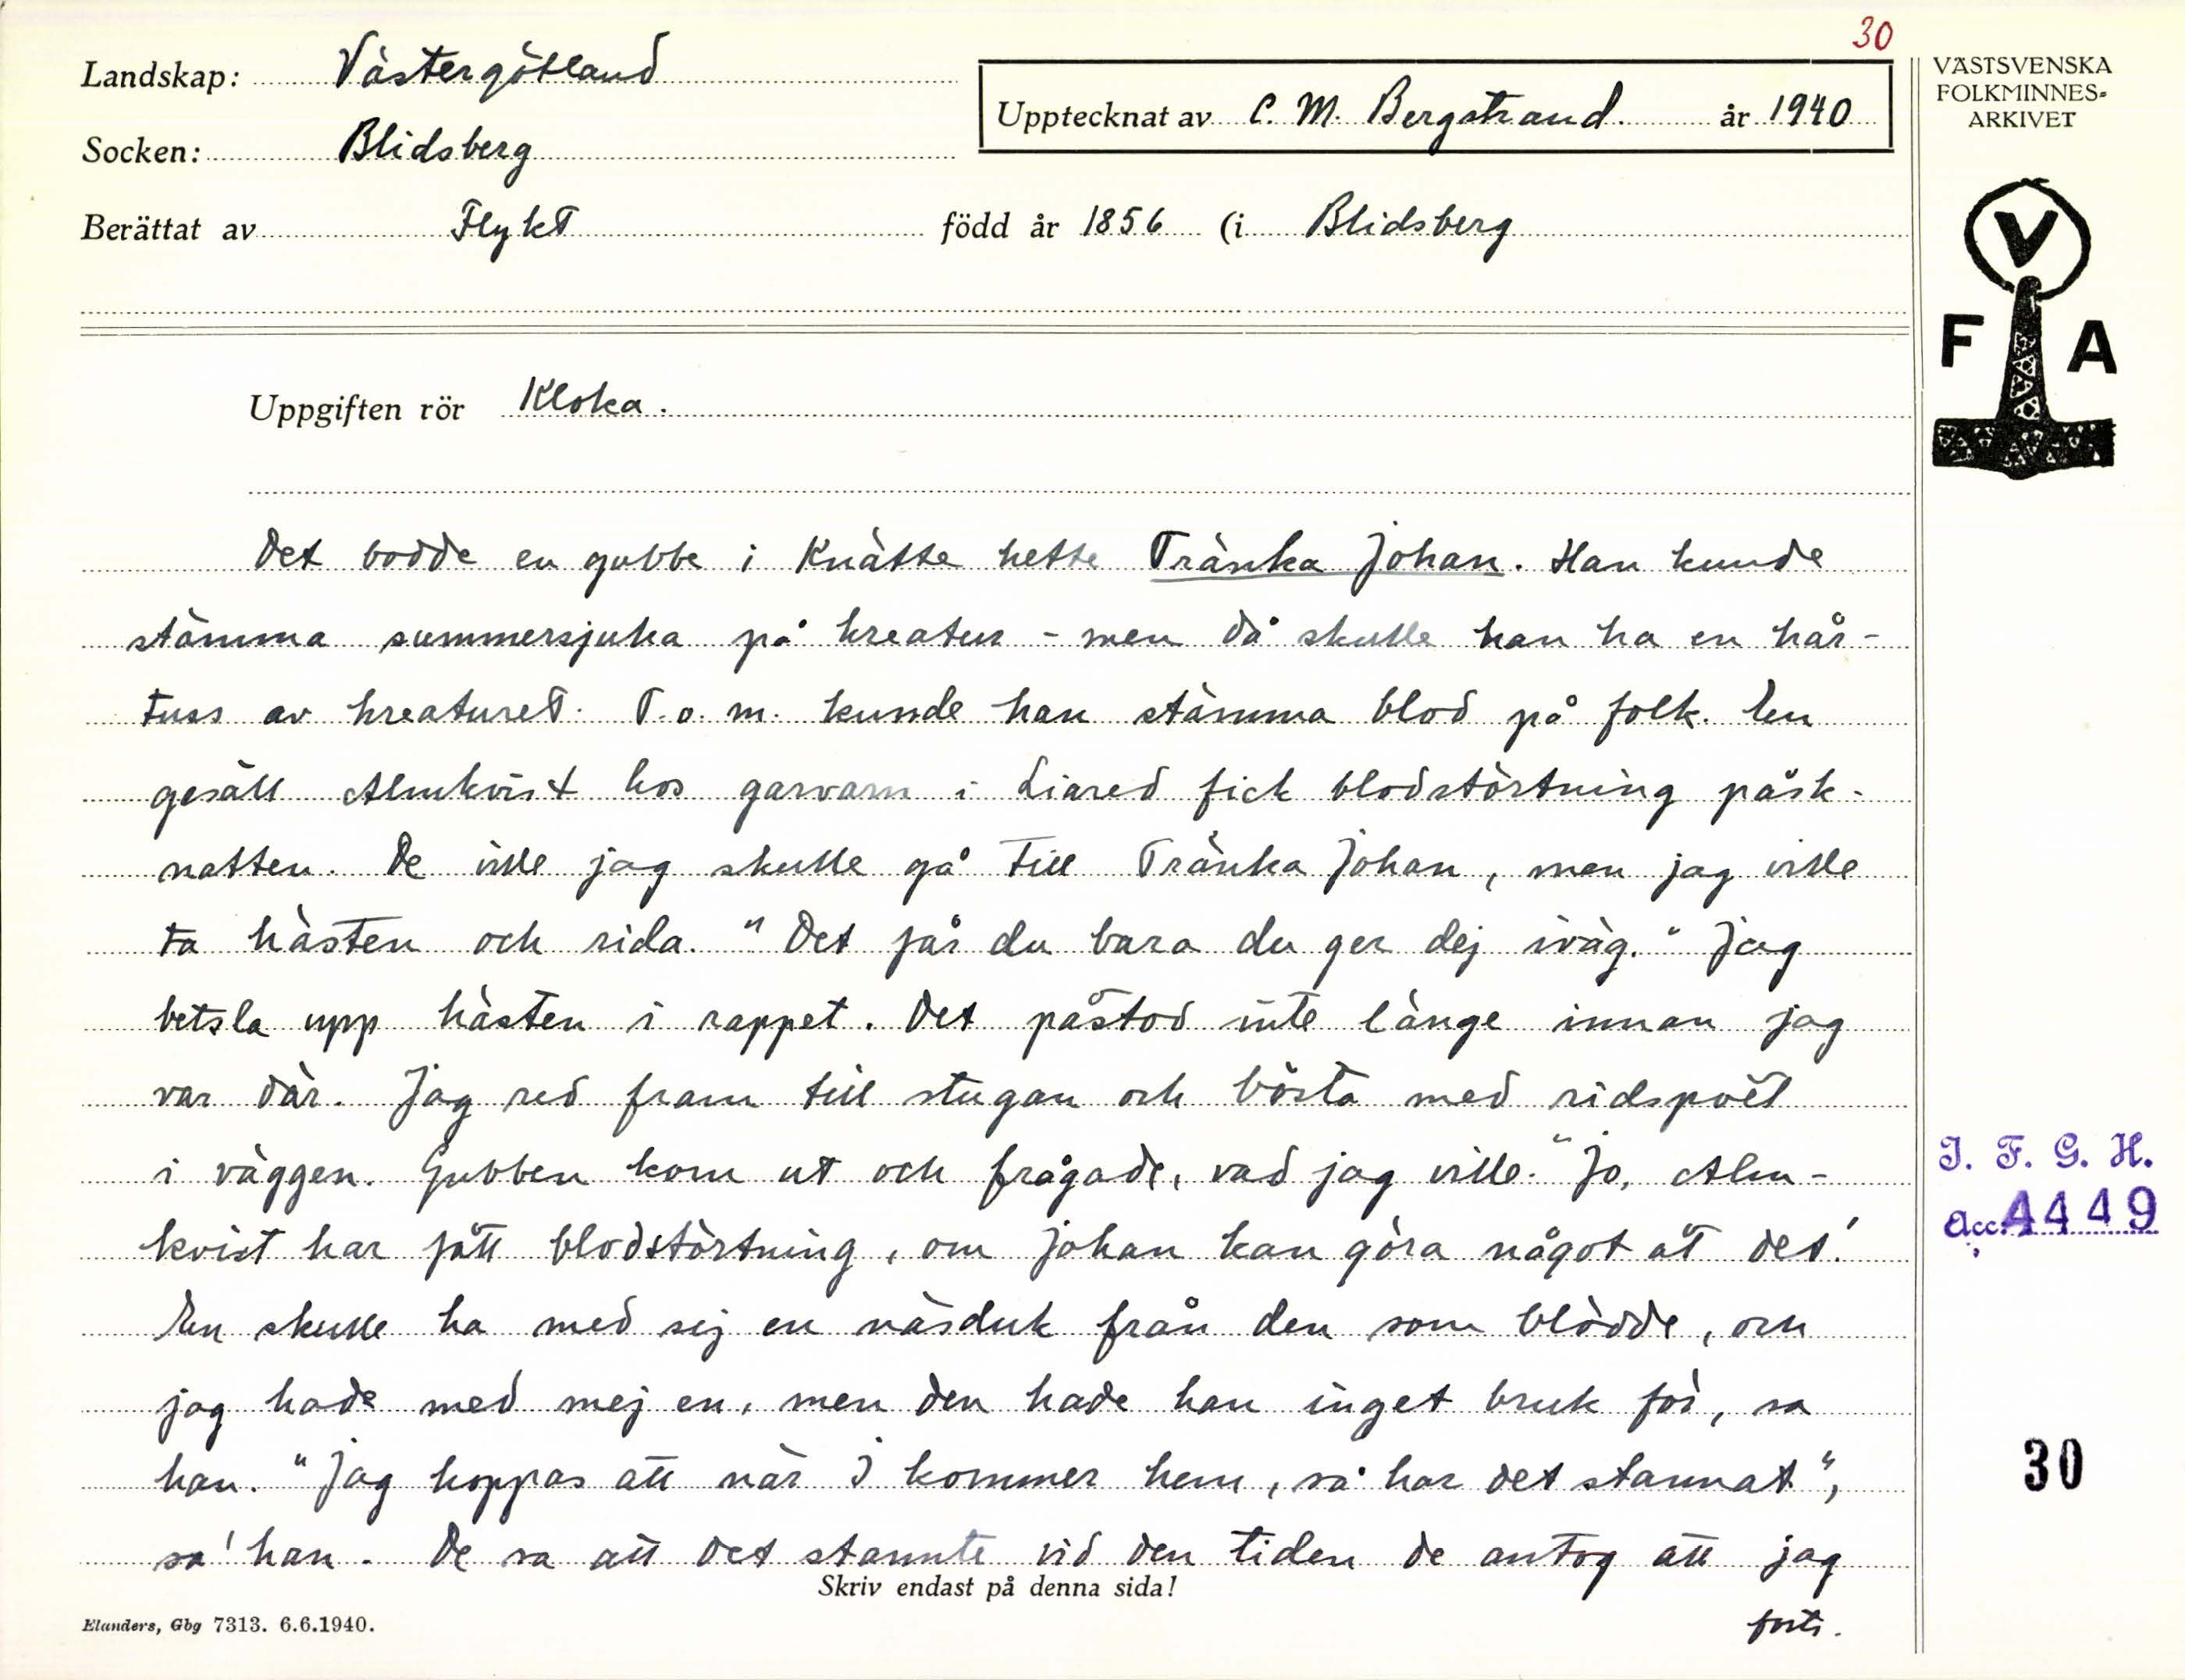 30
Landskap: Västergötland
Upptecknat av C. M. Bergstrand år 1940
Socken: Blidsberg
Berättat av Flykt född år 1856 (i Blidsberg
Uppgiften rör Kloka.
Det bodde en gubbe i Knätte hette Tränka Johan. Han kunde
stämma summersjuka på kreatur - men då skulle han ha en hår-
tuss av kreaturet. T.o.m. kunde han stämma blod på folk. En
gesäll Almkvist hos garvarn i Liared fick blodstörtning påsk-
natten. De ville jag skulle gå till Tränka Johan, men jag ville
ta hästen och rida. "Det får du bara du ger dej iväg." Jag
betsla upp hästen i rappet. Det påstod inte länge innan jag
var där. Jag red fram till stugan och bösta med ridspöet
i väggen. Gubben kom ut och frågade, vad jag ville. "Jo, Alm-
kvist har fått blodstörtning, om Johan kan göra något åt det.'
En skulle ha med sej en näsduk från den som blödde, och
jag hade med mej en, men den hade han inget bruk för, sa
han. "Jag hoppas att när I kommer hem, så har det stannat",
sa' han. De sa att det stannte vid den tiden de antog att jag
Skriv endast på denna sida!
forts.
Elanders, Gbg 7313. 6.6.1940.
VÄSTSVENSKA
FOLKMINNES-
ARKIVET
V
F A
I. F. G. H.
Acc. 4449
30